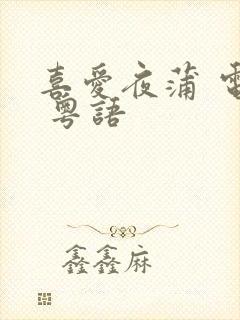 喜愛夜蒲 電
粵語
鑫鑫麻